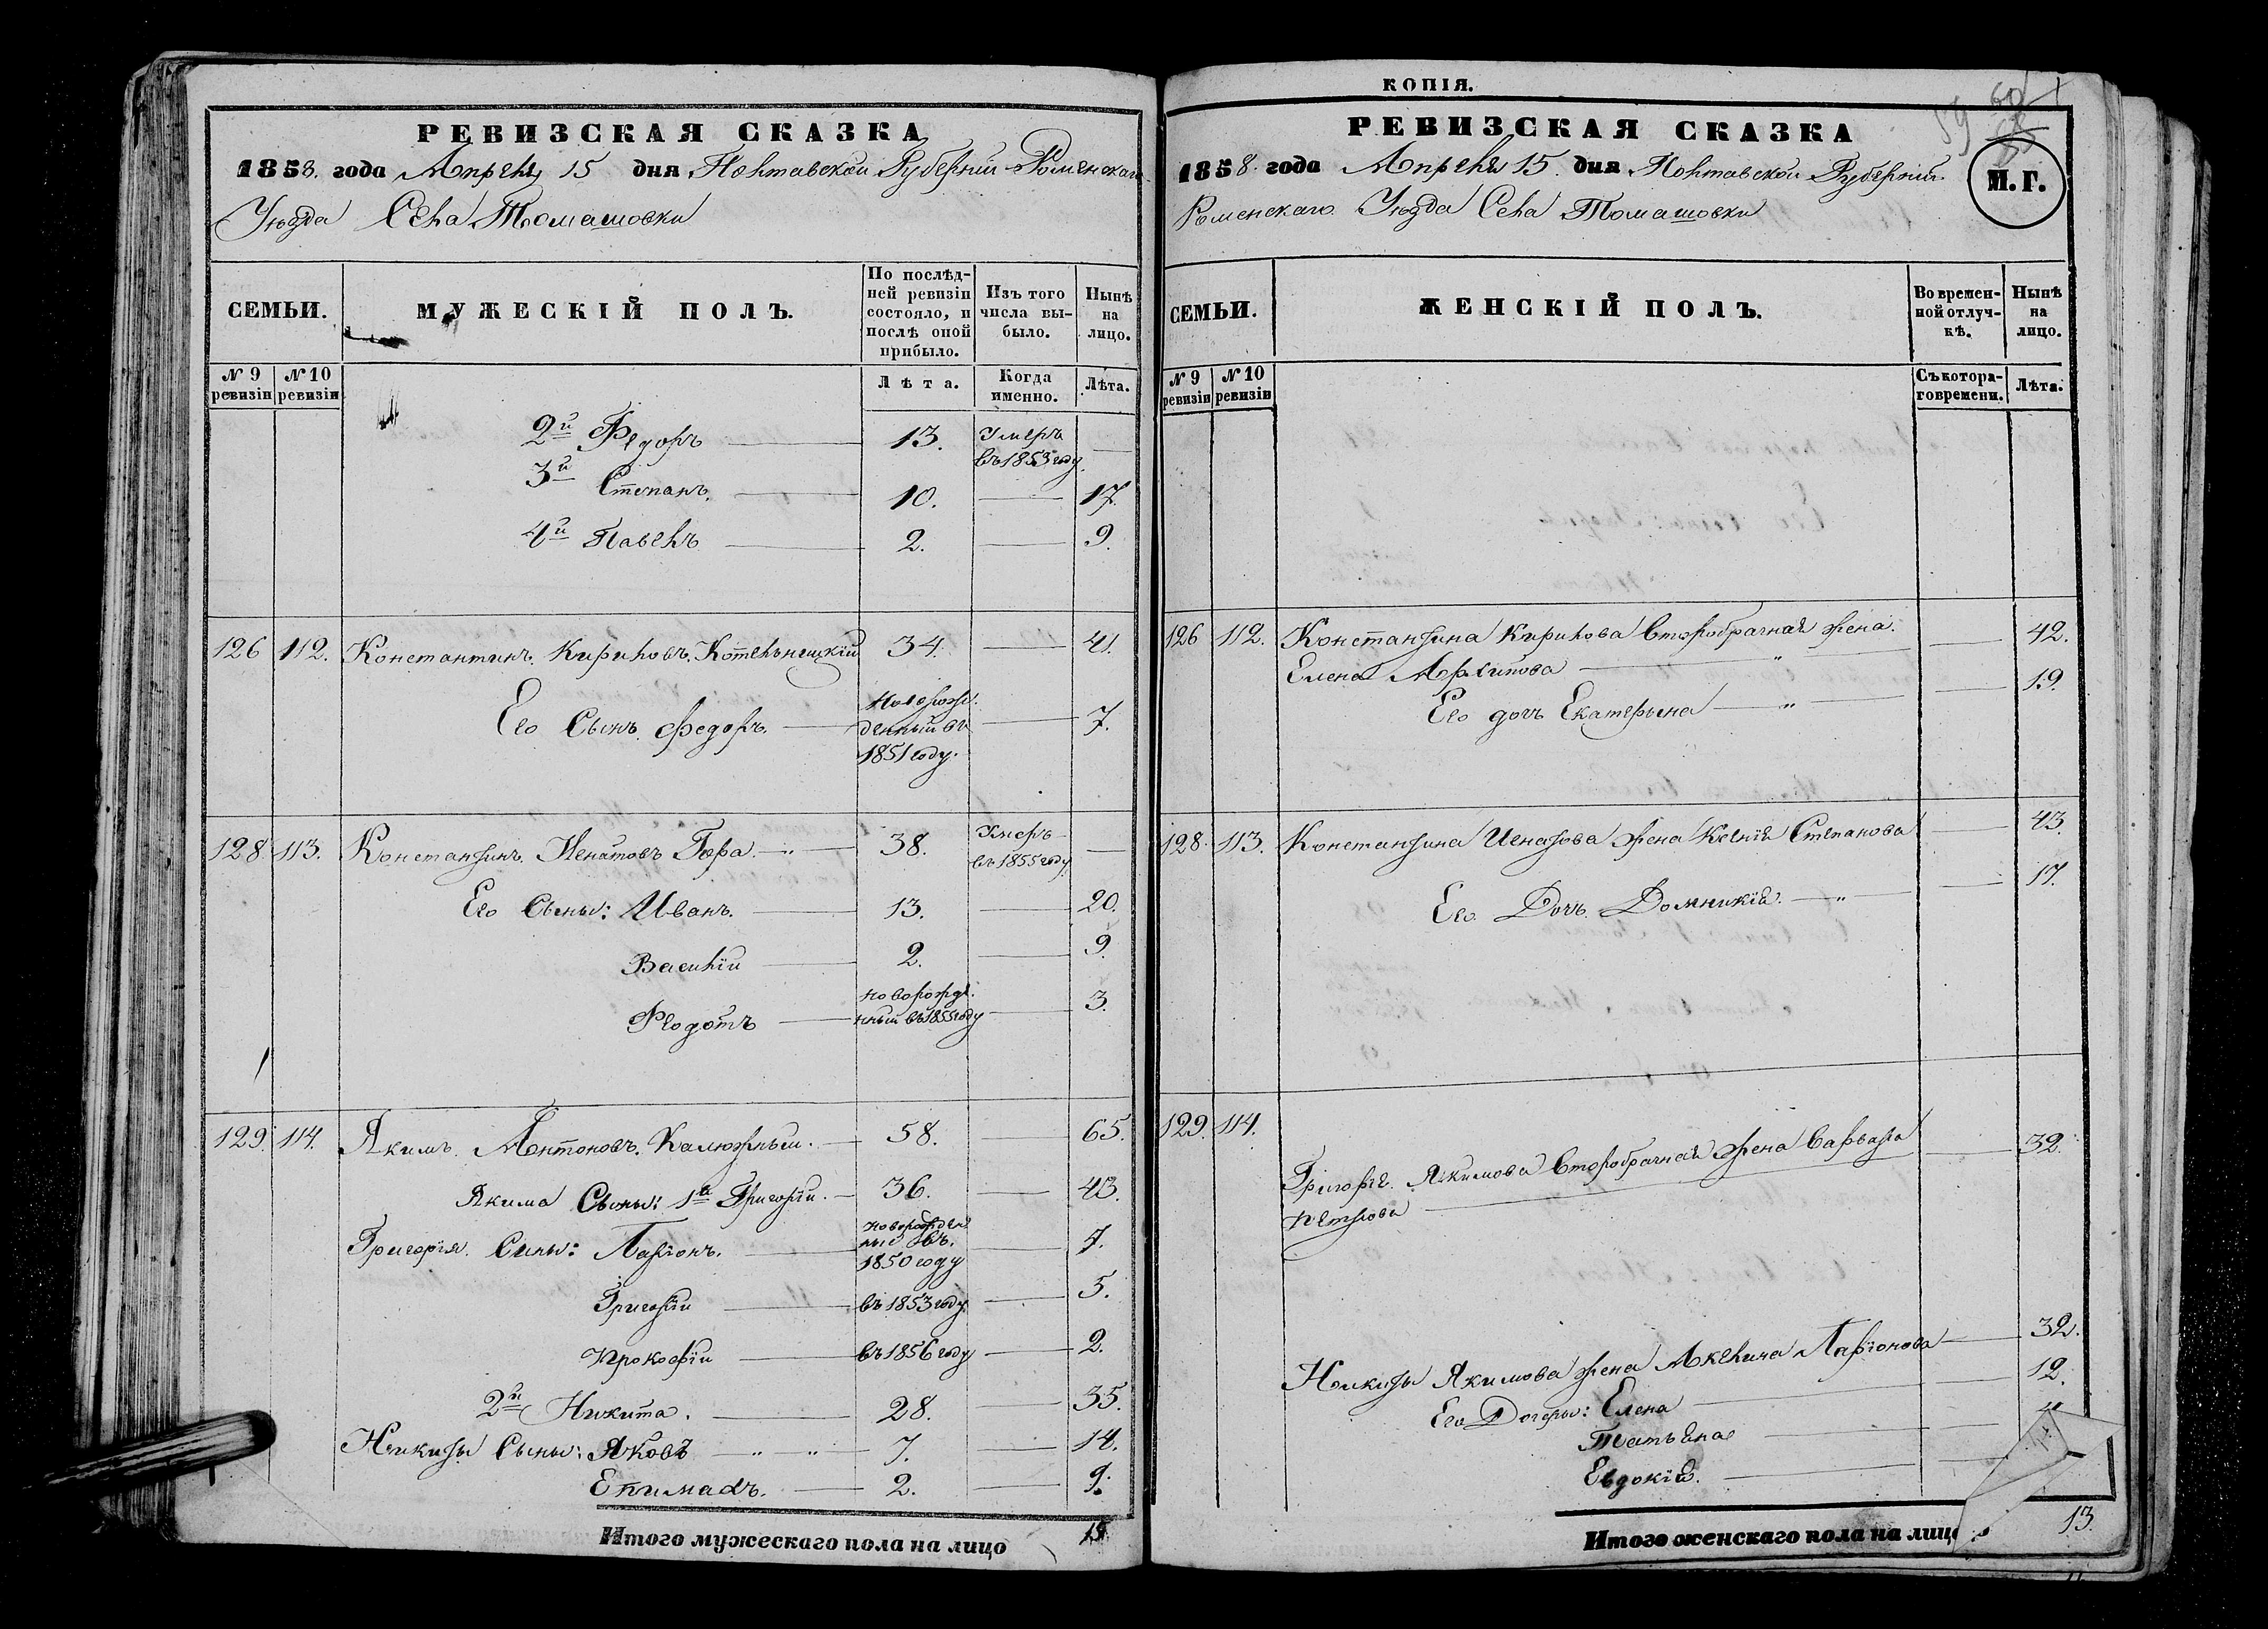 РЕВИЗСКАЯ СКАЗКА
1858. года Апреля 15 дня Полтавской Губерніи Роменскаго
Уѣзда Села Томашовки
СЕМЬИ.
МУЖЕСКІЙ ПОЛЪ.
По послѣд-
ней ревизіи
состояло, и
послѣ оной
прибыло.
Изъ того
числа вы-
было.
Нынѣ
на
лицо.
№ 9
ревизіи
№ 10
ревизіи
Лѣта.
Когда
именно.
Лѣта.
2й Федоръ 13. Умеръ
въ 1853 году.
3й Степанъ. 10. 17.
4й Павелъ 2. 9.
126 112. Константинъ. Кириловъ. Котельницкій 34. 41.
Его Сынъ. Федоръ. Новорож-
денный въ
1851 году. 7.
128. 113. Константинъ. Игнатовъ Гора. 38. Умеръ
въ 1855 году.
Его Сыны: Иванъ. 13. 20.
Василій 2. 9.
Федотъ новорожде
нный въ 1855 году 3.
129. 114. Якимъ. Антоновъ. Калюжный. 58. 65.
Якима Сыны: 1й Григорій. 36. 43.
Григорія. Сыны: Ларіонъ. новорожден
ный въ.
1850 году 7.
Григорій въ 1853 году. 5.
Прокофій въ 1856 году 2.
2й Никита. 28. 35.
Никиты Сыны: Яковъ 7. 14.
2. 9.
Итого мужескаго пола на лицо
КОПІЯ.
59
РЕВИЗСКАЯ СКАЗКА
1858. года Апреля 15. дня Полтавской Губерніи
Роменскаго Уѣзда Села Томашовки
М. Г.
СЕМЬИ.
ЖЕНСКІЙ ПОЛЪ.
Во времен-
ной отлуч-
кѣ.
Нынѣ
на
лицо.
№ 9
ревизіи
№ 10
ревизіи
Съ котора-
го времени.
Лѣта.
126 112. Константина Кирилова Второбрачная жена. 42.
Елена Архипова
Его дочь Екатерына 19.
128. 113. Константина Игнатова жена Ксенія Степанова 43.
Его Дочь Домникія. 17.
129. 114.
Григорія. Якимова Второбрачная жена Варвара 32.
Петрова
Никиты Якимова жена Акелина Ларіонова 32.
Его Дочеры: Елена 12.
Татьяна
Евдокія.
Итого женскаго пола на лицо 13.